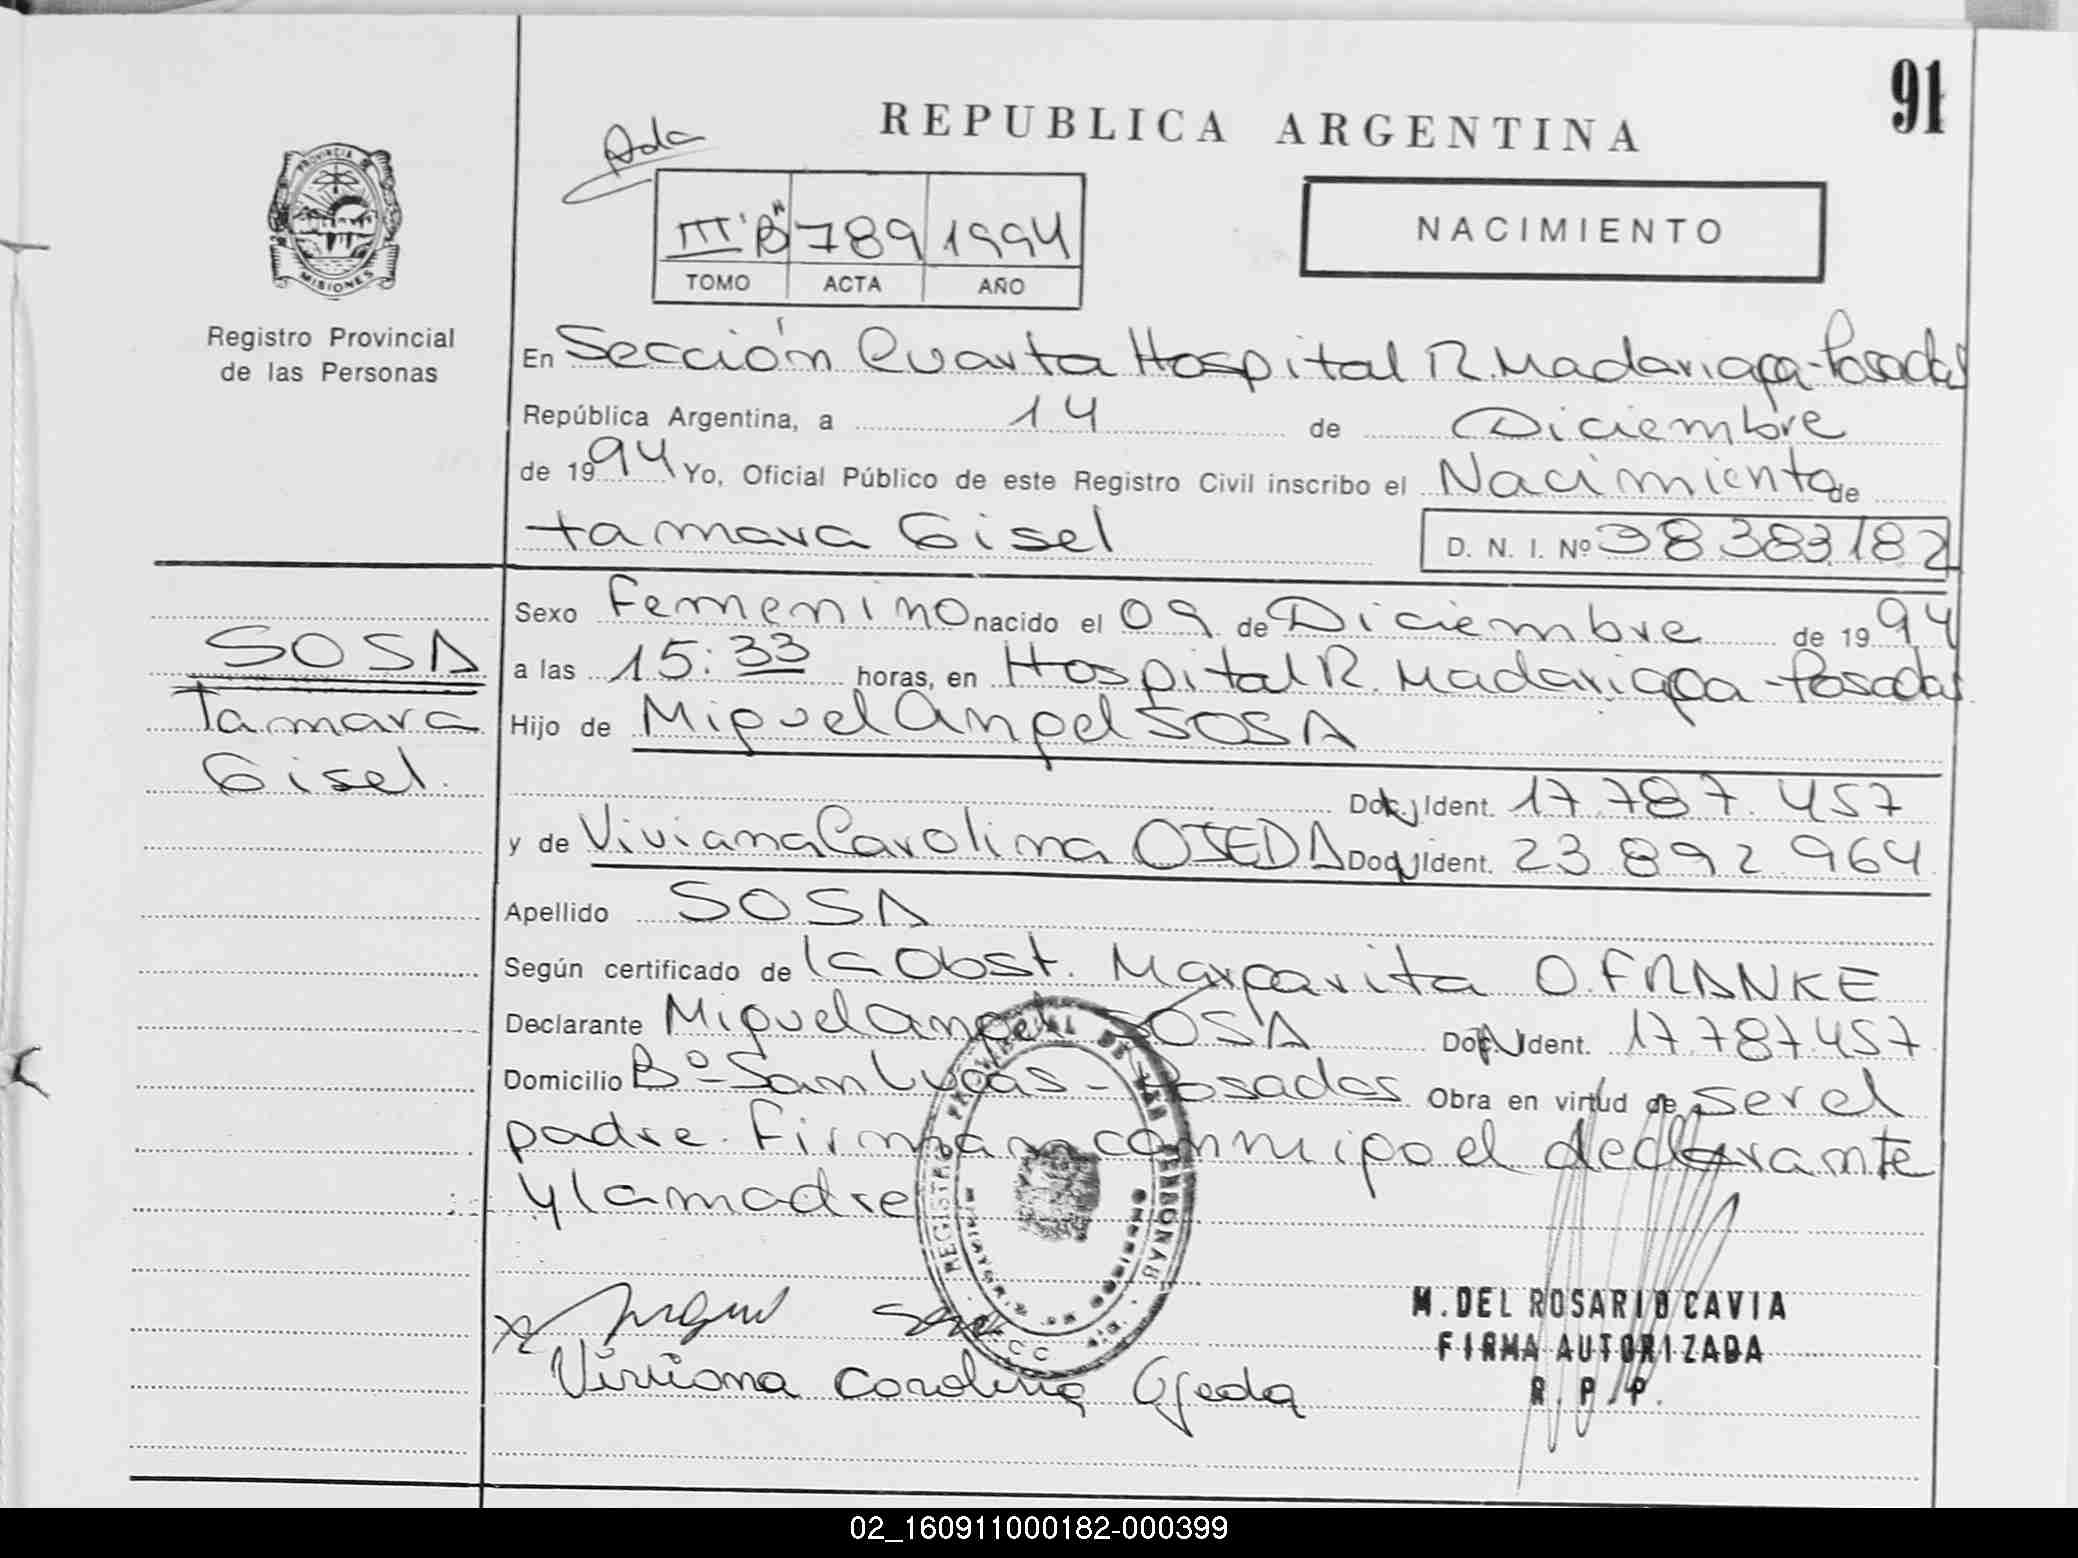 91
REPUBLICA ARGENTINA
Ada
NACIMIENTO
III "B" 789 1994
TOMO ACTA AÑO
PROVINCIA DE
MISIONES
Registro Provincial
de las Personas
En Sección Cuarta Hospital R. Madariaga - Posadas
República Argentina, a 14 de Diciembre
de 1994 Yo, Oficial Público de este Registro Civil inscribo el Nacimiento de
tamara Gisel D. N. I. Nº 38.383.182
SOSA
Tamara
Gisel.
Sexo Femenino nacido el 09 de Diciembre de 1994
a las 15:33 horas, en Hospital R. Madariaga - Posadas
Hijo de Miguel Angel SOSA
Doc. Ident. 17.787.457
y de Viviana Carolina OJEDA Doc. Ident. 23.892.964
Apellido SOSA
Según certificado de la Obst. Margarita O. FRANKE
Declarante Miguel Angel SOSA Doc. Ident. 17.787.457
Domicilio Bº - San Lucas - Posadas Obra en virtud de ser el
padre. Firman conmigo el declarante
y la madre
REGISTRO PROVINCIAL DE LAS PERSONAS
Miguel Sosa
Viviana Carolina Ojeda
M. DEL ROSARIO CAVIA
FIRMA AUTORIZADA
R. P. P.
02_160911000182-000399